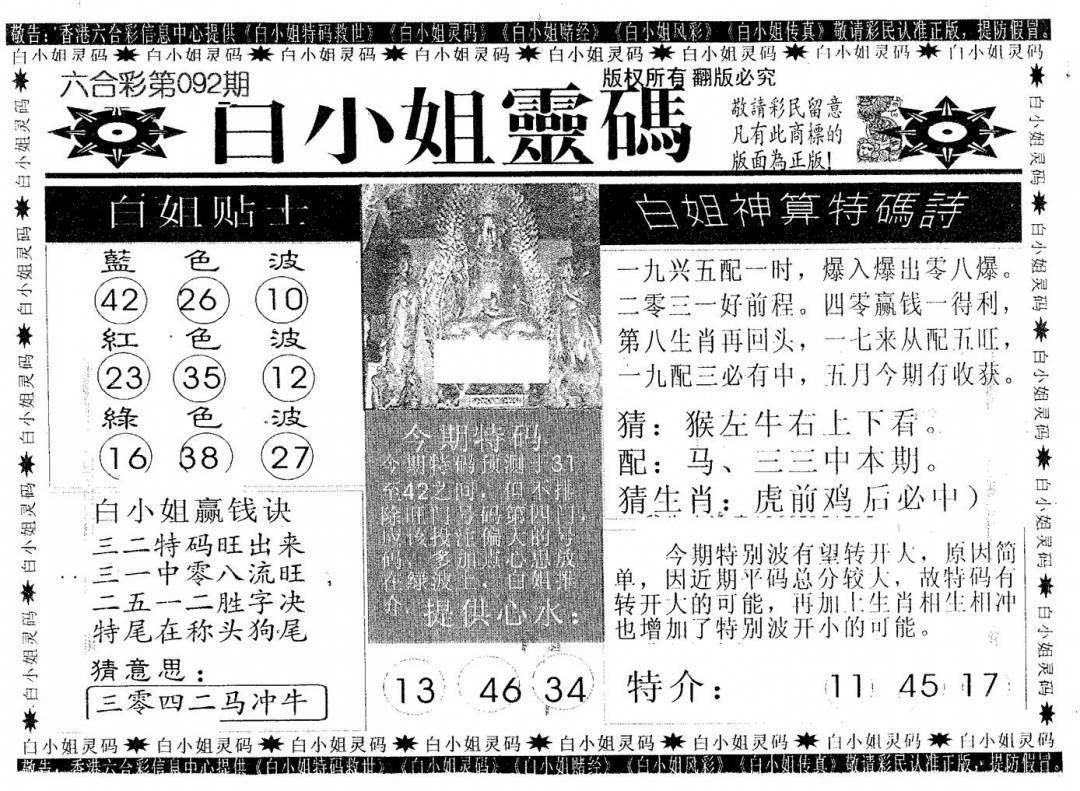 敬告：香港六合彩信息中心提供《白小姐特码救世》《白小姐灵码》《白小姐赌经》《白小姐风彩》《白小姐传真》敬请彩民认准正版，提防假冒。
白小姐灵码 白小姐灵码 白小姐灵码 白小姐灵码 白小姐灵码 白小姐灵码 白小姐灵码 白小姐灵码
六合彩第092期
版权所有 翻版必究
白小姐靈碼
敬請彩民留意
凡有此商標的
版面為正版!
白姐贴士
藍 色 波
42 26 10
紅 色 波
23 35 12
綠 色 波
16 38 27
白小姐赢钱诀
三二特码旺出来
三一中零八流旺，
二五一二胜字决
特尾在称头狗尾
猜意思：
三零四二马冲牛
今期特码
今期特码预测于31
至42之间，但不排
除
提供心水：
13 46 34
白姐神算特碼詩
一九兴五配一时，爆入爆出零八爆。
二零三一好前程。四零赢钱一得利，
第八生肖再回头，一七来从配五旺，
一九配三必有中，五月今期有收获。
猜：猴左牛右上下看。
配：马、三三中本期。
猜生肖：虎前鸡后必中）
今期特别波有望转开大，原因简
单，因近期平码总分较大，故特码有
转开大的可能，再加上生肖相生相冲
也增加了特别波开小的可能。
特介： 11 45 17
白小姐灵码 白小姐灵码 白小姐灵码 白小姐灵码 白小姐灵码
白小姐灵码 白小姐灵码 白小姐灵码 白小姐灵码 白小姐灵码
白小姐灵码 白小姐灵码 白小姐灵码 白小姐灵码 白小姐灵码 白小姐灵码 白小姐灵码 白小姐灵码
敬告：香港六合彩信息中心提供《白小姐特码救世》《白小姐灵码》《白小姐赌经》《白小姐风彩》《白小姐传真》敬请彩民认准正版，提防假冒。